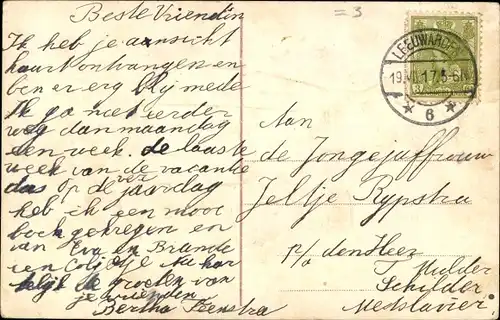 Beste Vriendin
Ik heb je aansicht
kaart ontvangen en
ben er erg blij mede
Ik ga niet eerder
weg dan maandag
een week. de laaste
week van de vacantie
dus op de verjaardag
heb ik een mooi
boek gekregen en
van Eva en Brande
een Nu har
telijk de groeten van
je vriendin
Bertha Feenstra
=3
LEEUWARDEN
19. 17. 5-6N
6
Aan
de Jongejuffrouw
Jeltje Rypstra
p/a den Heer
Mulder
Schilder
Metslawier.